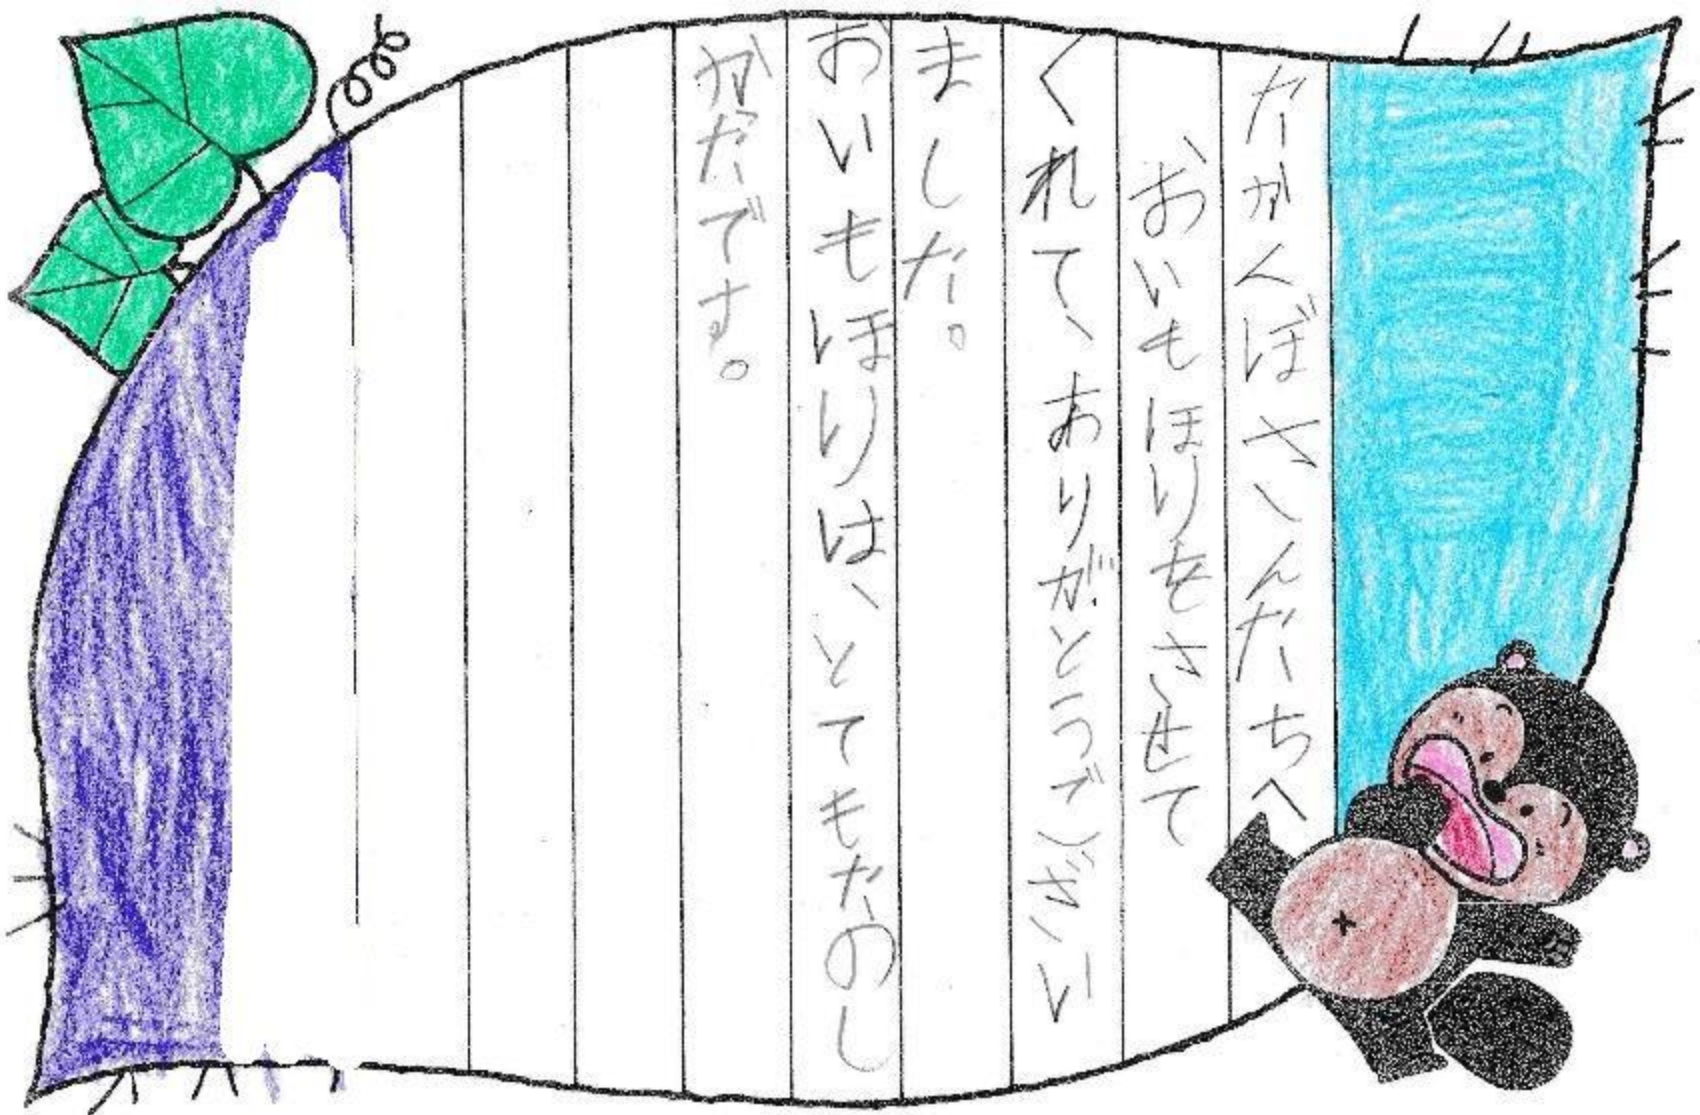 たかくぼさんたちへ
おいもほりをさせて
くれて、ありがとうござい
ました。
おいもほりは、とてもたのし
かたです。